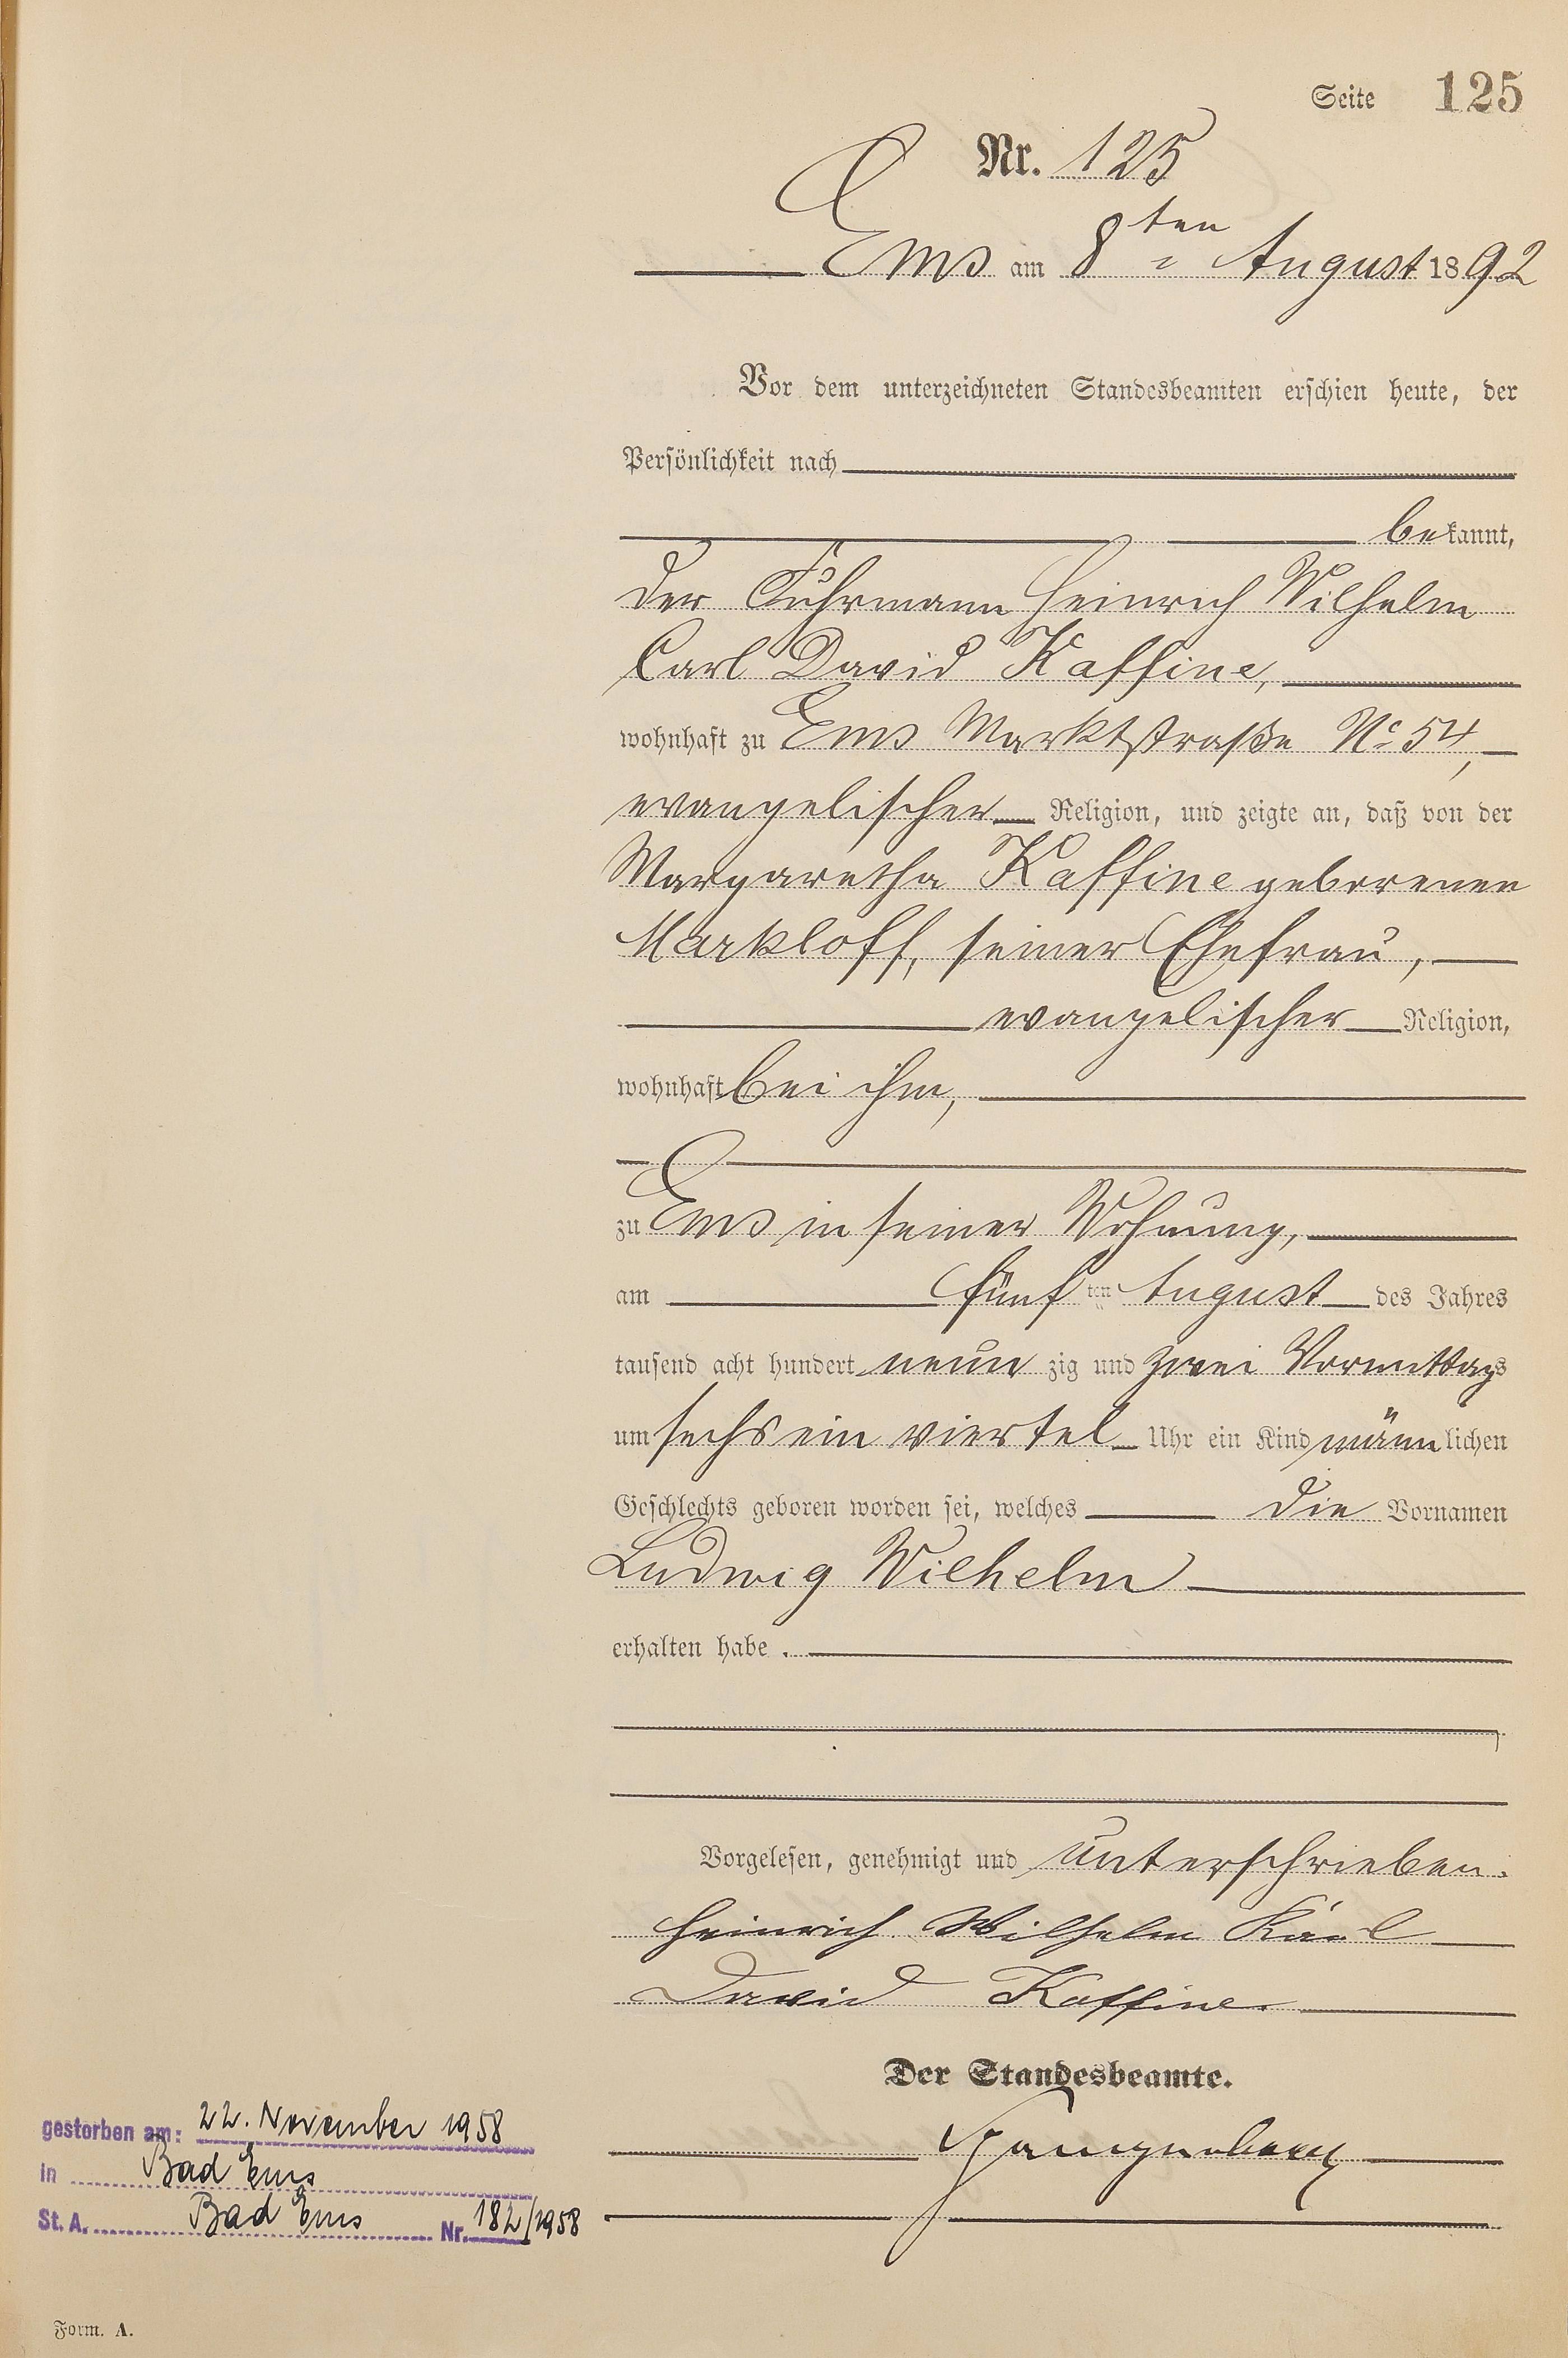 Seite 125
Nr. 125
Ems am 8ten August 1892
Vor dem unterzeichneten Standesbeamten erschien heute, der
Persönlichkeit nach
bekannt,
der Fuhrmann Heinrich Wilhelm
Carl David Kaffine,
wohnhaft zu Ems Marktstraße No 54,
evangelischer Religion, und zeigte an, daß von der
Margaretha Kaffine geborenen
Markloff, seiner Ehefrau,
evangelischer Religion,
wohnhaft bei ihm,
zu Ems in seiner Wohnung,
am fünften August des Jahres
tausend acht hundert neunzig und zwei Vormittags
um sechs ein viertel Uhr ein Kind männlichen
Geschlechts geboren worden sei, welches die Vornamen
Ludwig Wilhelm
erhalten habe.
Vorgelesen, genehmigt und unterschrieben.
Heinrich Wilhelm Karl
David Kaffine
Der Standesbeamte.
gestorben am: 22. November 1958
in Bad Ems
St. A. Bad Ems Nr. 182/1958
Form. A.